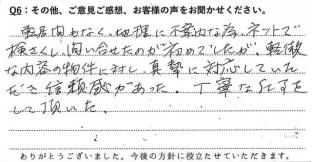 Q6：その他、ご意見ご感想、お客様の声をお聞かせください。
電話間もなく、地理に不案内な為、ネットで
検さくし、問い合せたのが初めてでしたが、軽微
な内容の物件に対し、真摯に対応していた
だき信頼感があった。丁寧な仕事を
して頂いた。
ありがとうございました。今後の方針に役立たせていただきます。